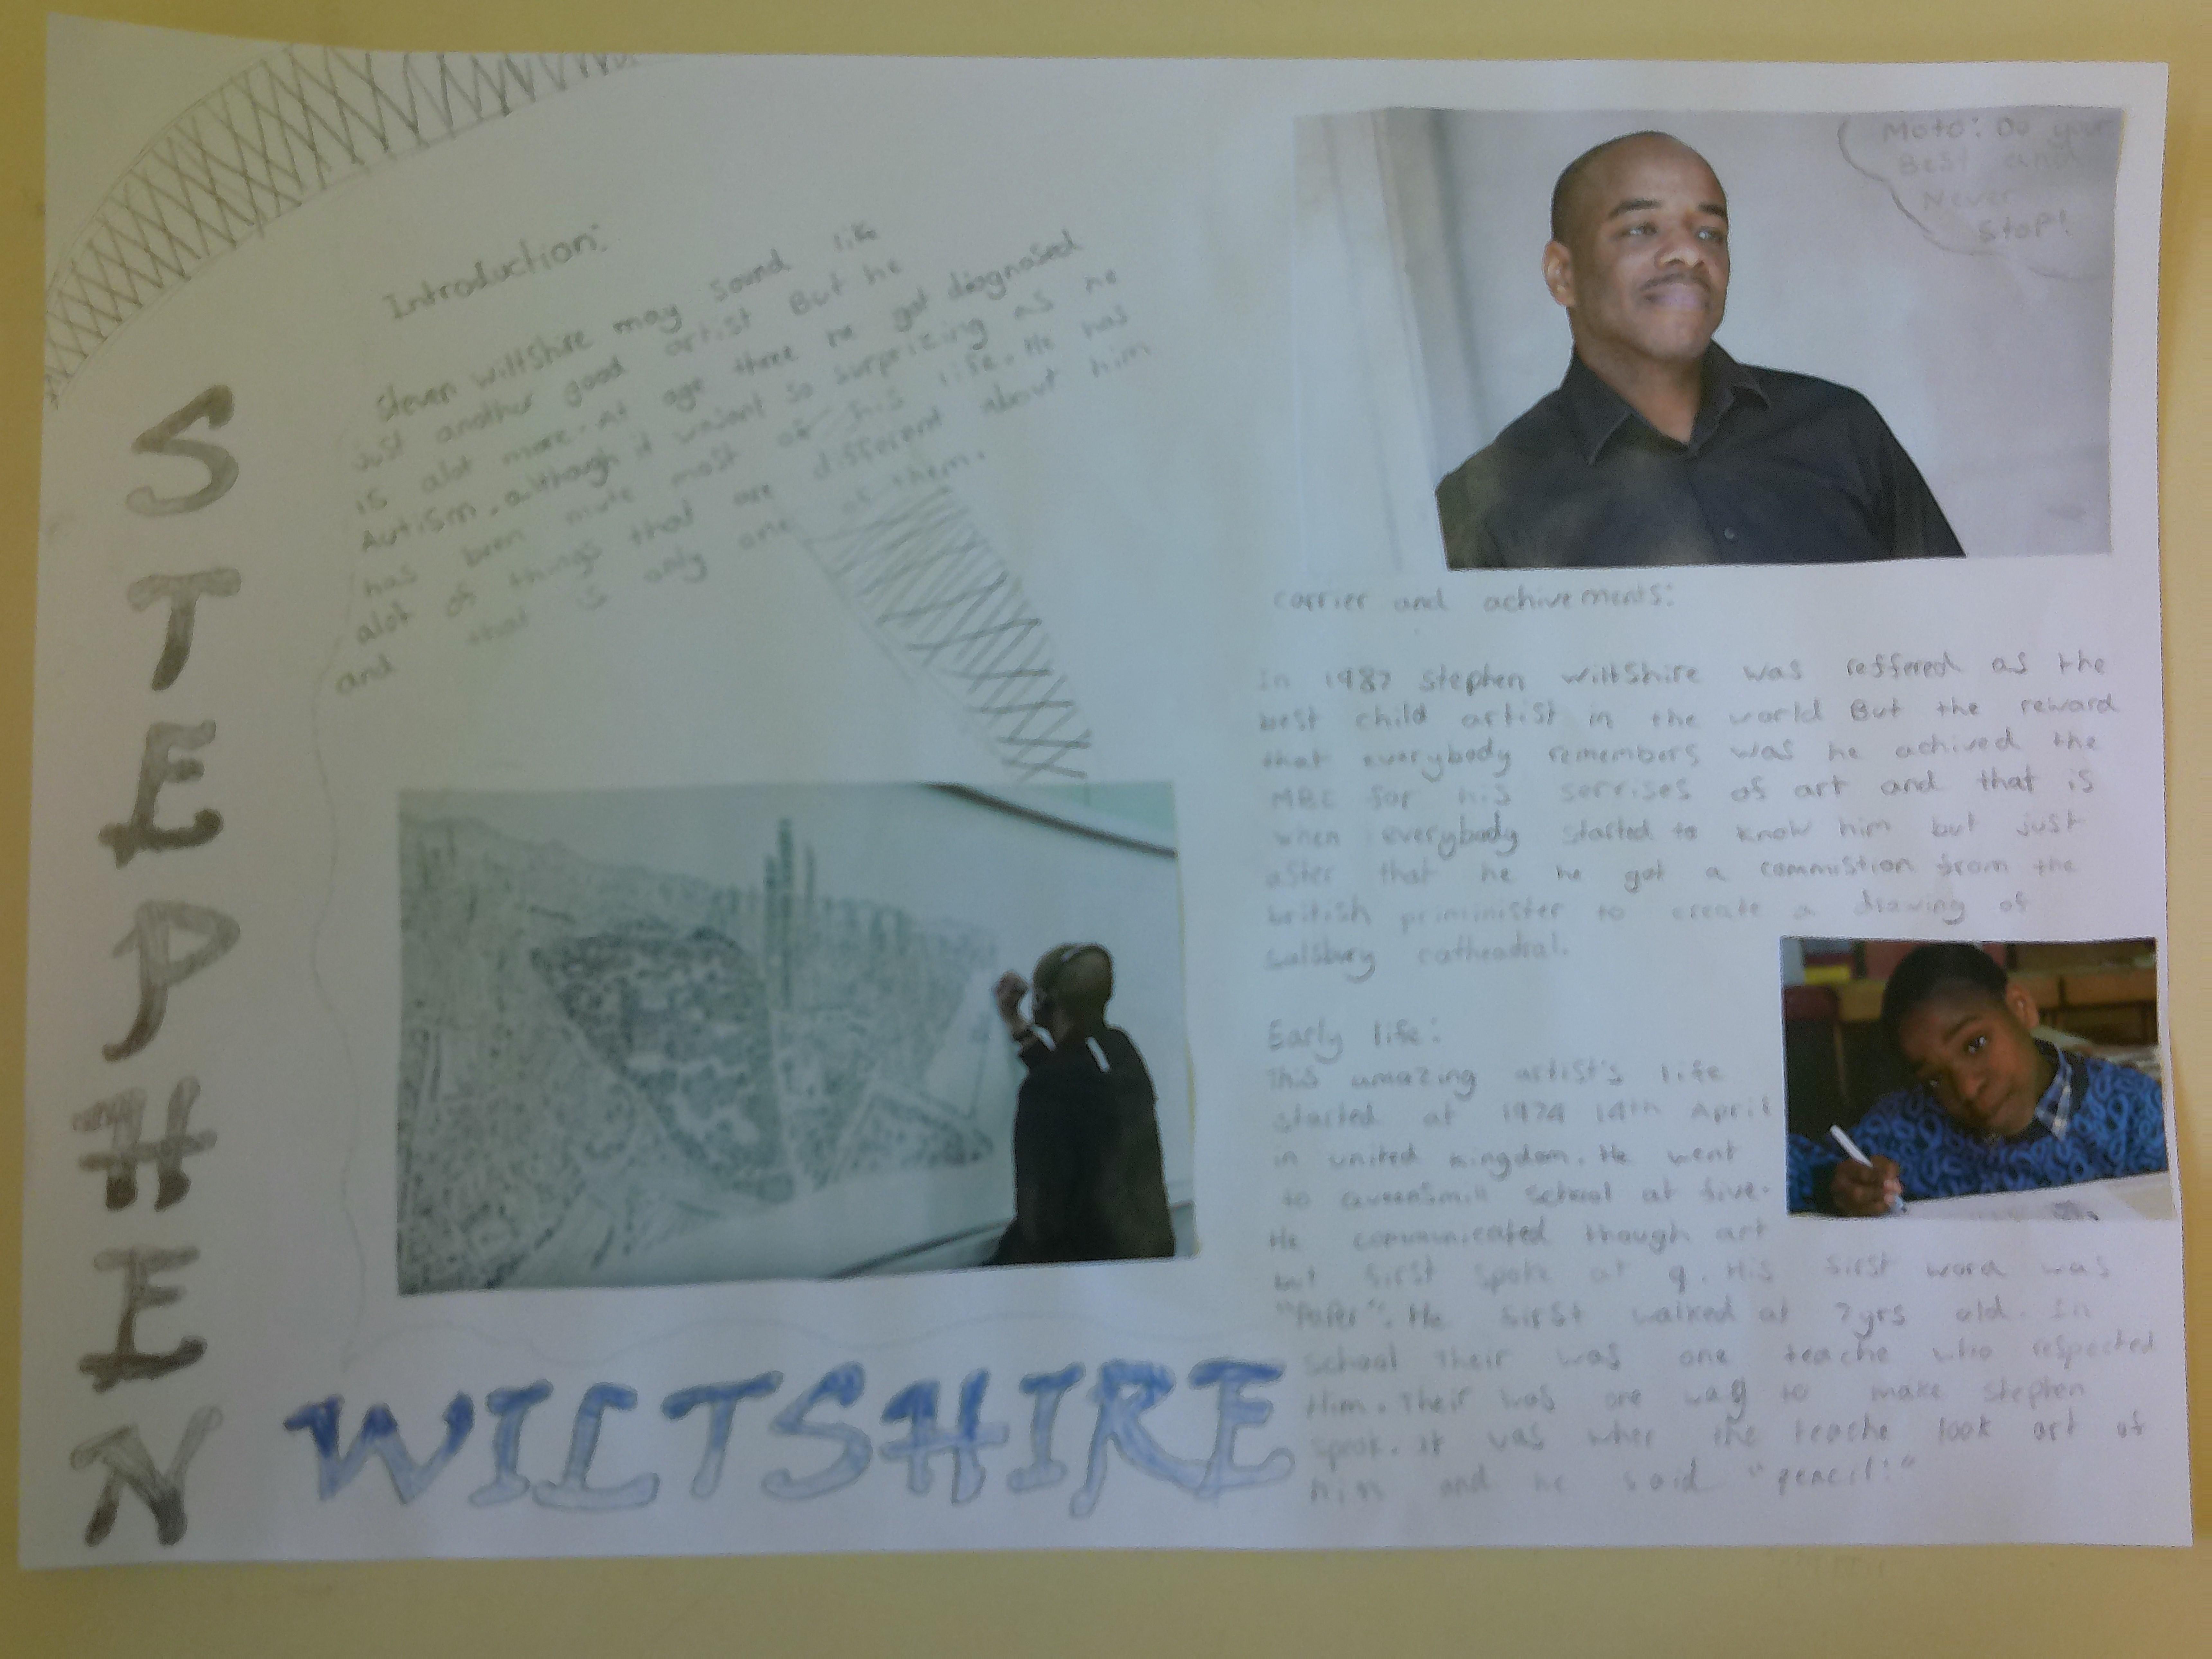 STEPHEN
WILTSHIRE
Introduction:
Steven wiltshire may sound like
just another good artist But he
is alot more. At age three he got diagnosed
Autism. although it wasnt so surprizing as he
has been mute most of his life. He has
alot of things that are different about him
and that is only one of them.
Moto: Do your
Best and
Never
Stop!
carrier and achivements:
In 1987 Stephen wiltshire was reffered as the
best child artist in the world But the reward
that everybody remembers was he achived the
MBE for his servises of art and that is
when everybody started to know him but just
after that he he got a commistion from the
british priminister to create a drawing of
salsbury cathedral.
Early life:
This amazing artist's life
started at 1974 14th April
in united kingdom. He went
to Queensmill School at five.
He communicated though art
but first spoke at 9. His first word was
"Paper". He first walked at 7yrs old. In
school Their was one teache who respected
Him. Their was one way to make Stephen
speak. It was when the teache look art of
him and he said "pencil!"